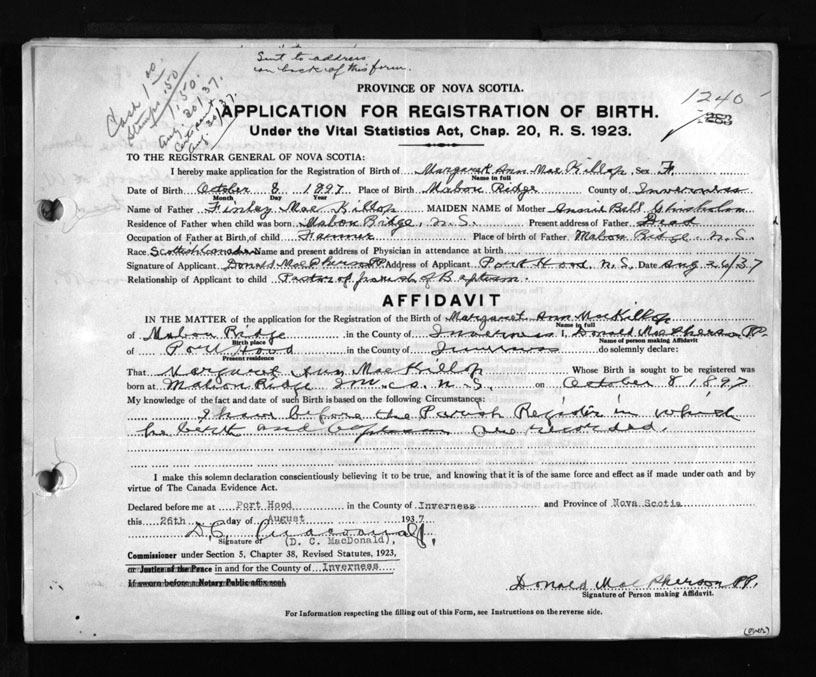 Sent to address
on back of this form.
Cash 1.00
Stamps .50
1.50.
Aug. 20/37.
Aug. 20/37.
PROVINCE OF NOVA SCOTIA.
1240
APPLICATION FOR REGISTRATION OF BIRTH.
Under the Vital Statistics Act, Chap. 20, R. S. 1923.
TO THE REGISTRAR GENERAL OF NOVA SCOTIA:
I hereby make application for the Registration of Birth of Margaret Ann MacKillop, Sex F.
Name in full
Date of Birth October 8 1897 Place of Birth Mabou Ridge County of Inverness
Month Day Year
Name of Father Finlay MacKillop MAIDEN NAME of Mother Annie Bell Chisholm
Residence of Father when child was born Mabou Ridge, N.S. Present address of Father Dead
Occupation of Father at Birth, of child Farmer Place of birth of Father Mabou Ridge, N.S.
Race Scottish Canadian Name and present address of Physician in attendance at birth
Signature of Applicant Donald MacPherson P.P. Address of Applicant Port Hood, N.S. Date Aug 26/37
Relationship of Applicant to child Pastor of parish of Baptism.
AFFIDAVIT
IN THE MATTER of the application for the Registration of the Birth of Margaret Ann MacKillop
Name in full
of Mabou Ridge in the County of Inverness I, Donald MacPherson P.P.
Birth place Name of person making Affidavit
of Port Hood in the County of Inverness do solemnly declare:
Present residence
That Margaret Ann MacKillop Whose Birth is sought to be registered was
born at Mabou Ridge Inv. Co. N.S. on October 8 1897
My knowledge of the fact and date of such Birth is based on the following Circumstances:
I have before me the Parish Register in which
he birth and baptism are recorded.
I make this solemn declaration conscientiously believing it to be true, and knowing that it is of the same force and effect as if made under oath and by
virtue of The Canada Evidence Act.
Declared before me at Port Hood in the County of Inverness and Province of Nova Scotia
this 26th day of August 1937
D. C. MacDonald,
Signature of (D. C. MacDonald),
Commissioner under Section 5, Chapter 38, Revised Statutes, 1923,
or Justice of the Peace in and for the County of Inverness
If sworn before a Notary Public affix seal.
Donald MacPherson P.P.
Signature of Person making Affidavit.
For Information respecting the filling out of this Form, see Instructions on the reverse side.
(over)